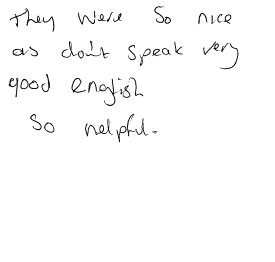 they were so nice
as don't speak very
good english
so helpful.